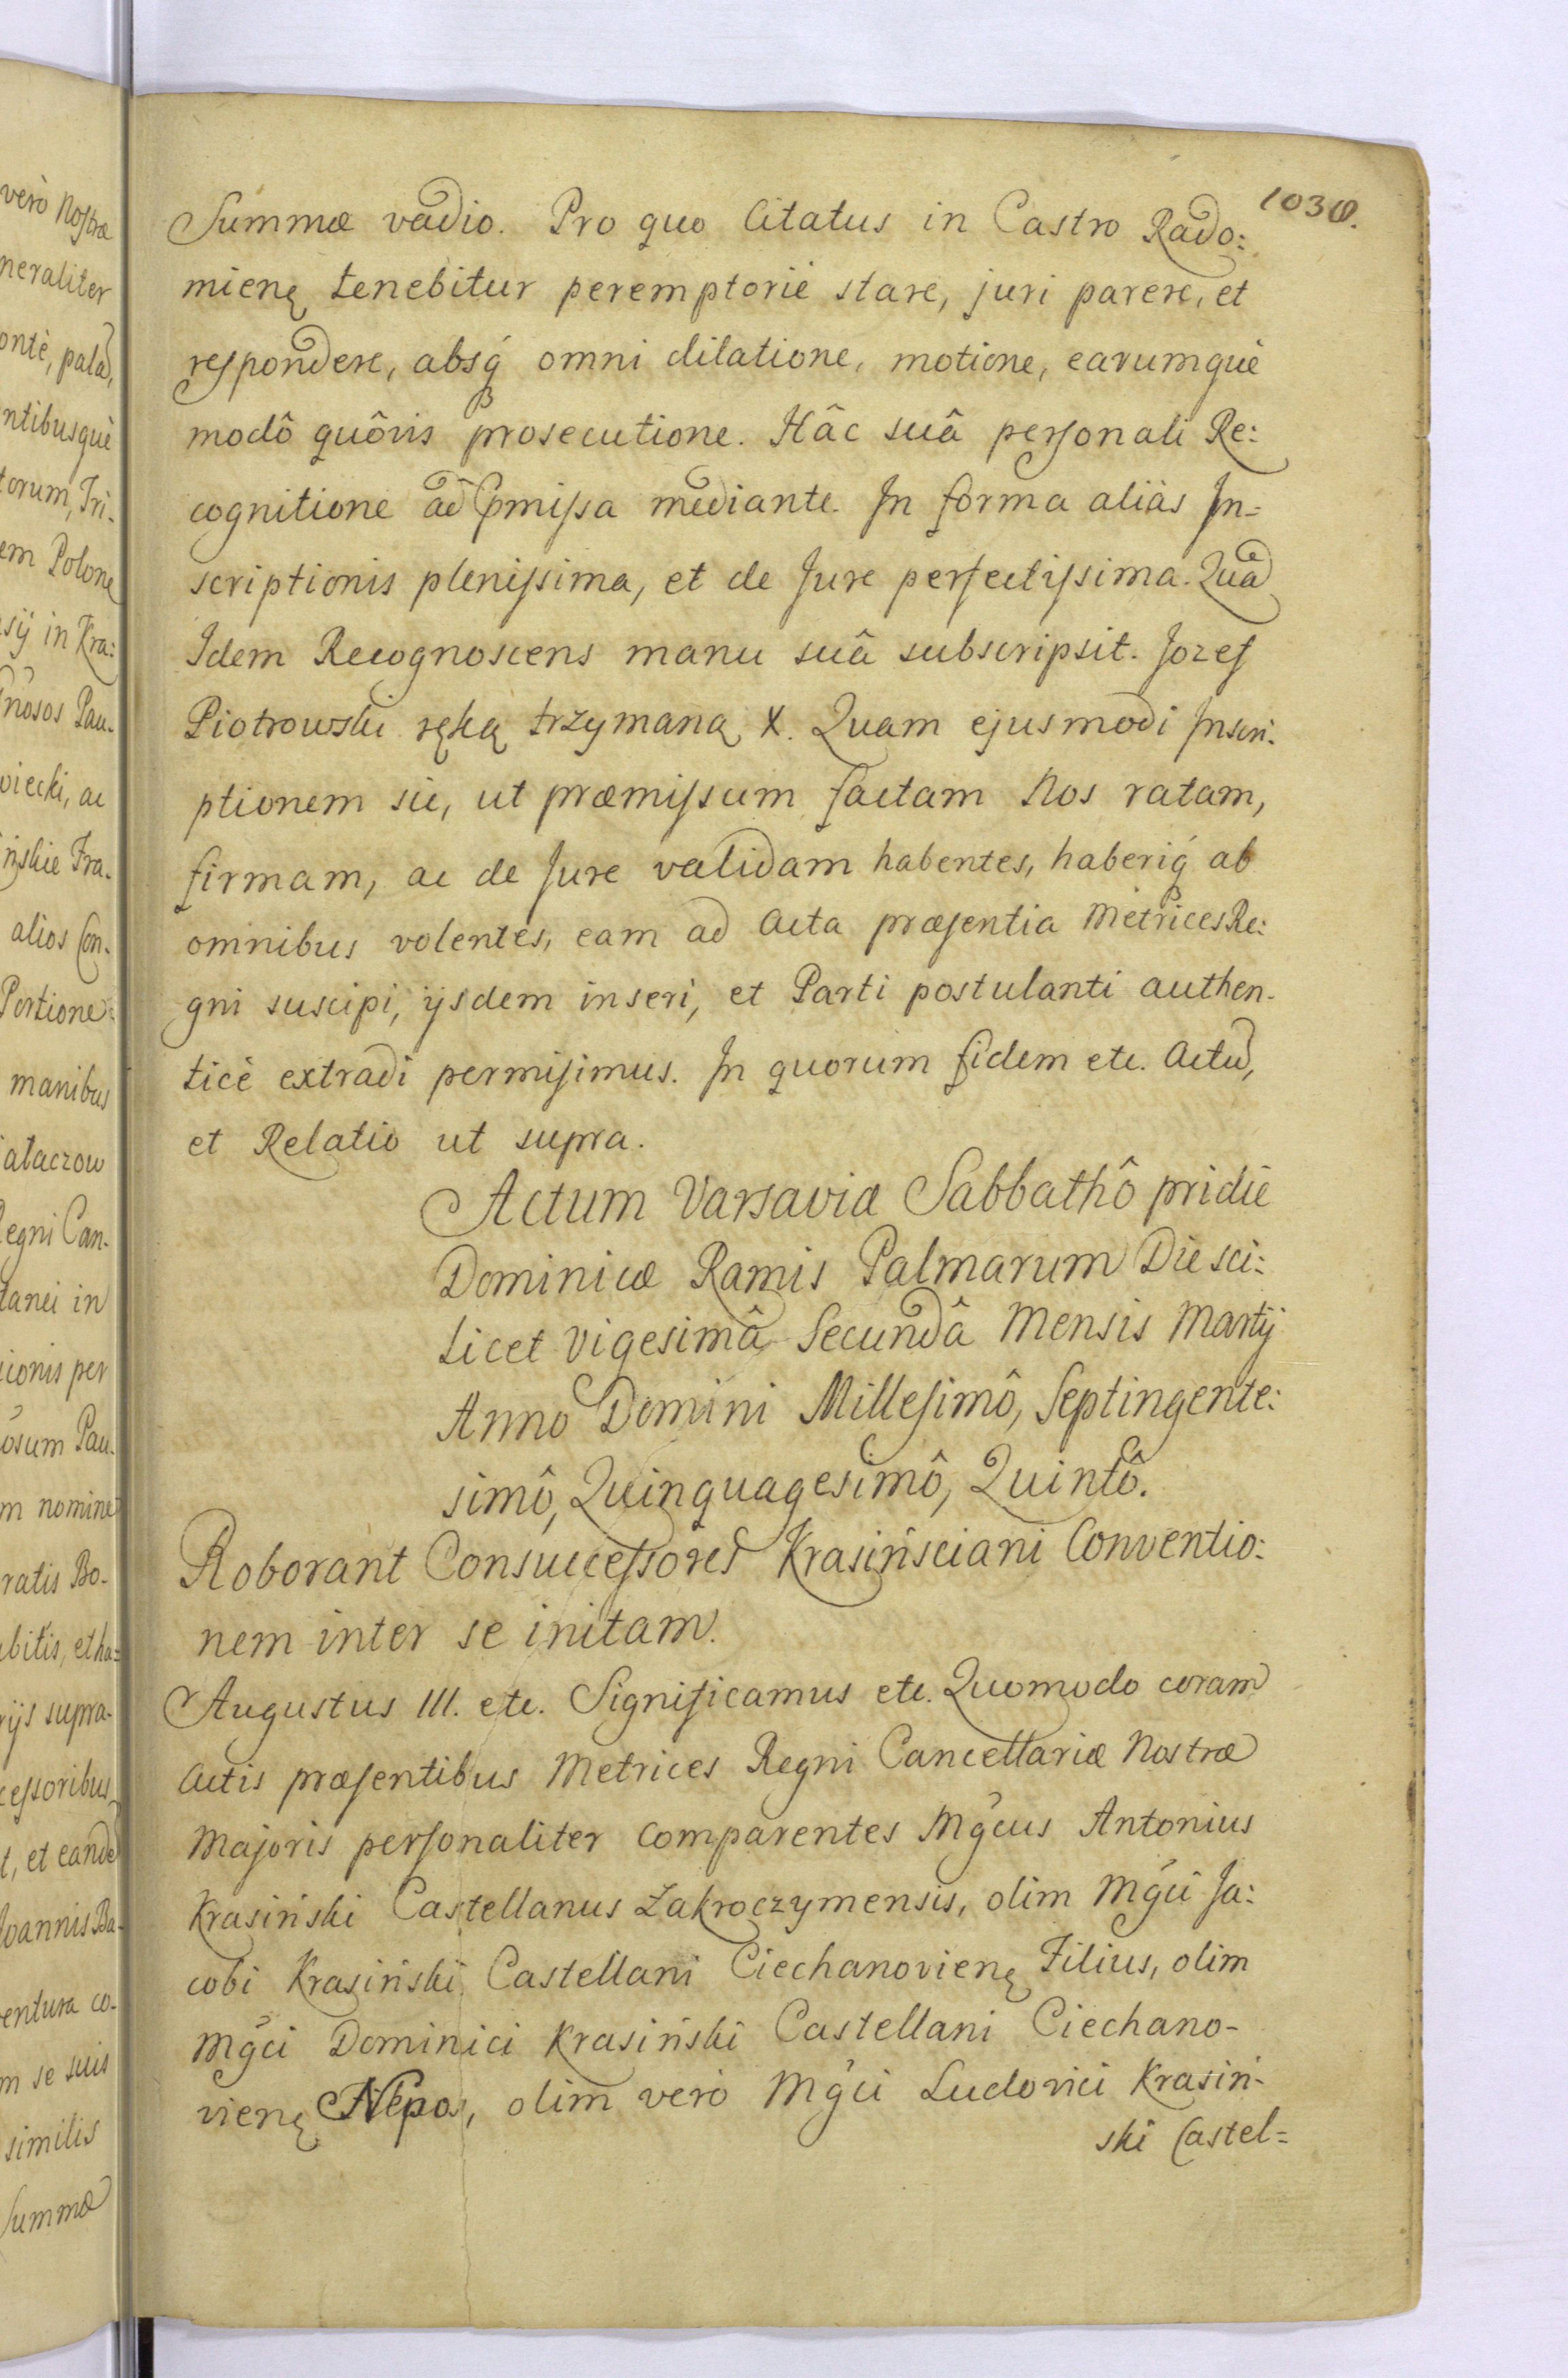 1030.
Summæ vadio. Pro quo Citatus in Castro Rado:
mienę tenebitur peremptorié stare, juri parere, et
respondere, absq́ omni dilatione, motione, earumquè
modô quôvis prosecutione. Hâc suâ personali Re:
cognitione ad p̄missa mediante. In forma aliàs In=
scriptionis plenissima, et de Jure perfectissima. Quã
Idem Recognoscens manu suâ subscripsit. Jozef
Piotrowski ręką trzymaną X. Quam ejusmodi Inscri:
ptionem sic, ut præmissum factam Nos ratam,
firmam, ac de Jure validam habentes, haberiq́ ab
omnibus volentes, eam ad Acta præsentia Metrices Re:
gni suscipi, ijsdem inseri, et Parti postulanti authen-
ticè extradi permisimus. In quorum fidem etc. Actũ,
et Relatio ut supra.
Actum Varsaviæ Sabbathô pridiè
Dominicæ Ramis Palmarum Die sci:
licet vigesimâ Secundâ Mensis Martij
Anno Domini Millesimô, Septingente:
simô, Quinquagesimô, Quintô.
Roborant Consuccessores Krasińsciani Conventio:
nem inter se initam.
Augustus III. etc. Significamus etc. Quomodo coram
Actis præsentibus Metrices Regni Cancellariæ Nostræ
Majoris personaliter Comparentes Mg̃cus Antonius
Krasiński Castellanus Zakroczymensis, olim Mg̃ci Ja:
cobi Krasiński Castellani Ciechanovienę Filius, olim
Mg̃ci Dominici Krasiński Castellani Ciechano-
vienę Nepos, olim verò Mg̃ci Ludovici Krasiń-
ski Castel=
verò Nostræ
neraliter
ontè, palã,
ntibusquè
torum, Tri-
em Polonę
sij in Kra:
noSos Pau-
viecki, ac
ińskie Fra-
alios Con-
Portione
manibus
ataczow
egni Can-
tanei in
ionis per
osum Pau-
m nomine
ratis Bo-
bitis, et ha=
rijs supra-
cessoribus
t, et eandẽ
Joannis Ba-
entura co-
m se suis
similis
Summæ